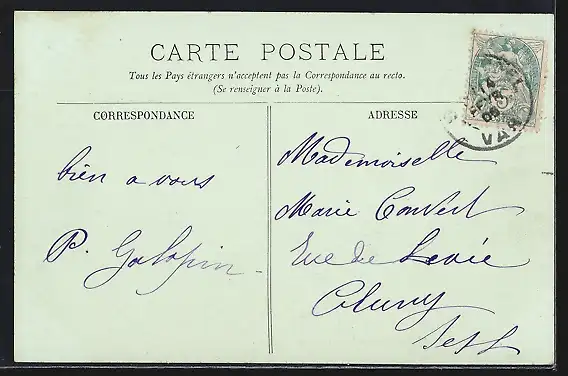 CARTE POSTALE
Tous les Pays étrangers n'acceptent pas la Correspondance au recto.
(Se renseigner à la Poste).
CORRESPONDANCE
ADRESSE
bien a vous
P. Galopin
Mademoiselle
Marie Convert
Rue de Levée
Cluny
VAR